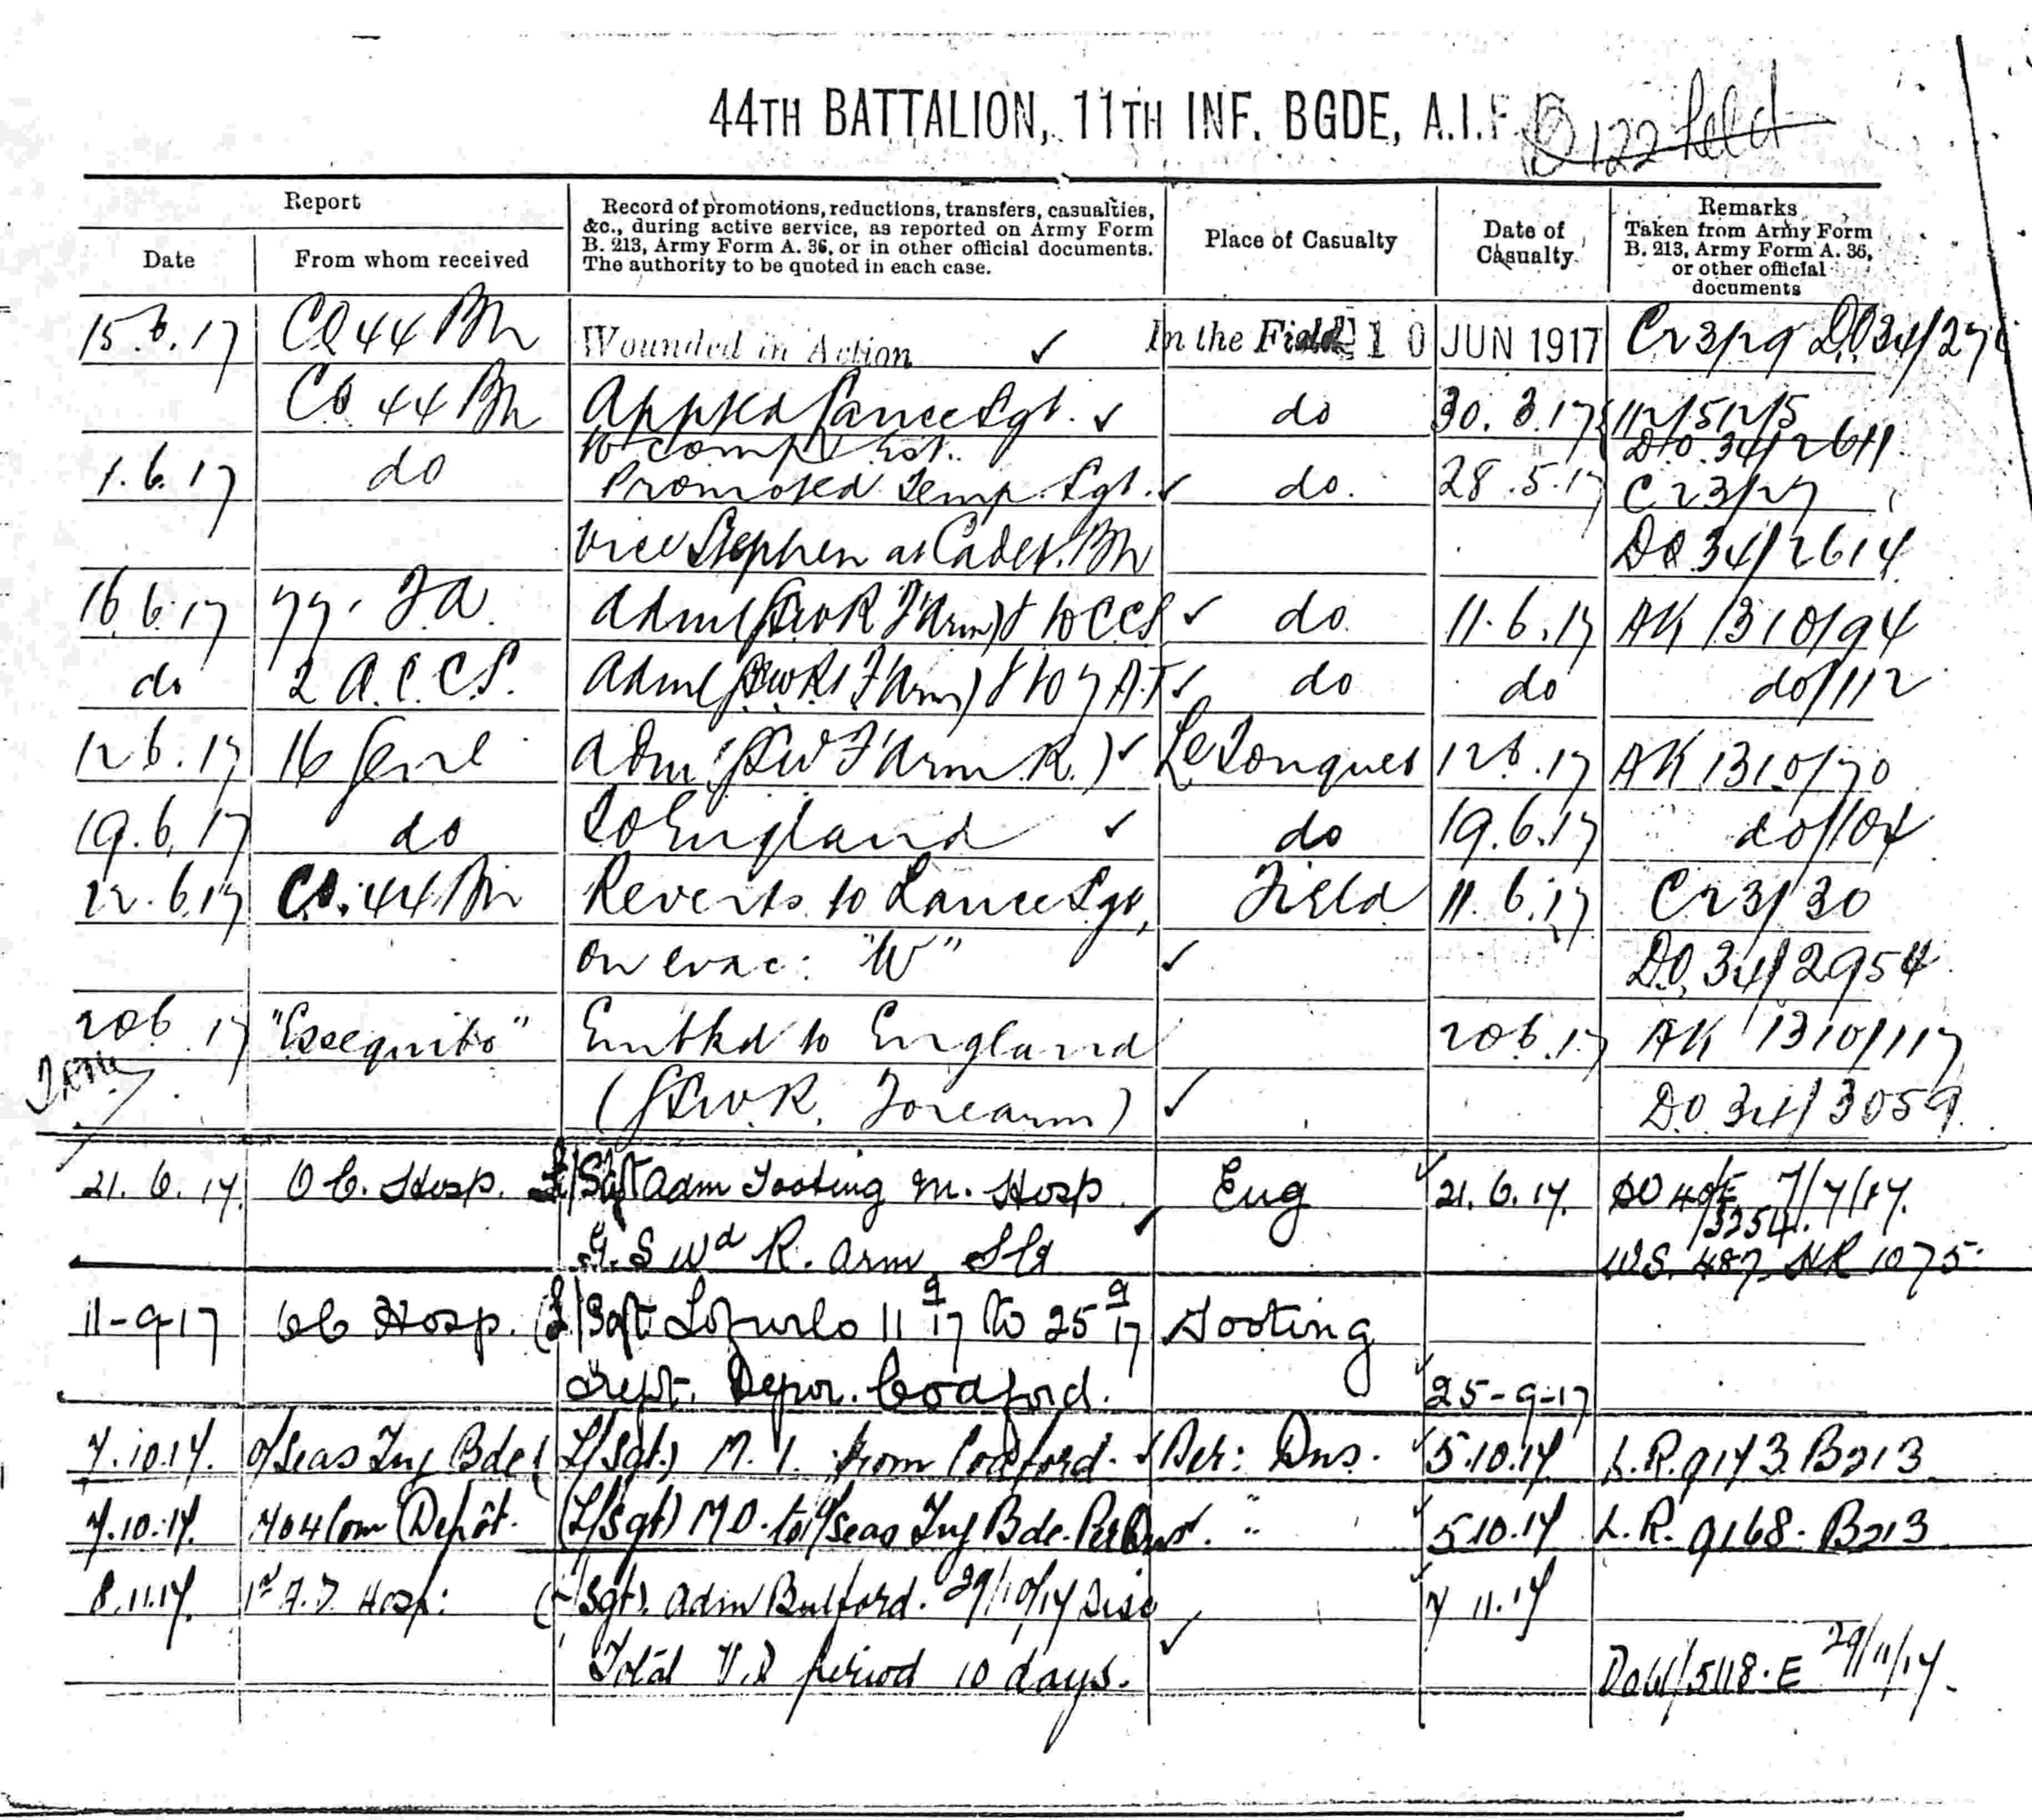 44TH BATTALION, 11TH INF. BGDE, A.I.F
122 Field
Report
Record of promotions, reductions, transfers, casualties, &c., during active service, as reported on Army Form B. 213, Army Form A. 36, or in other official documents. The authority to be quoted in each case.
Place of Casualty
Date of Casualty
Remarks Taken from Army Form B. 213, Army Form A. 36, or other official documents
Date From whom received
15.6.17 CO 44 Bn Wounded in Action ✓ In the Field 10 JUN 1917 Cr3/29 DO34/27
CO 44 Bn Appted Lance Sgt. ✓ do 30.3.17 112/512/5
to comp Est. DO.34/2611
1.6.17 do Promoted Temp Sgt. ✓ do. 28.5.17 Cr3/27
vice Stephen at Cadet Bn DO 34/2614
16.6.17 77. F.A. Adm (GSW R F'Arm) & to CCS ✓ do. 11.6.17 AK 1310/94
do 2 A.C.C.S. Adm (GSW R F'Arm) & to 7 A.T ✓ do do do/112
12.6.17 16 Genl Adm (GSW F'Arm R.) ✓ Le 12.6.17 AK 1310/70
19.6.17 do To England ✓ do 19.6.17 do/104
22.6.17 CO. 44 Bn Reverts to Lance Sgt, Field 11.6.17 Cr3/30
on evac: "W" ✓ DO. 34/2954
20.6.17 "Essequibo" Embkd to England 20.6.17 AK 1310/117
(GSW R. Forearm) ✓ DO 34/3059
21.6.17. O C. Hosp. L/Sgt Adm Tooting M. Hosp Eng ✓ 21.6.17. DO 40/E 7/7/17.
/3254.
G.S Wd R. Arm Slg ✓ W.S. 487 NR 1075.
11-9-17 OC Hosp. (L/Sgt Lo Furlo 11 9/17 to 25 9/17 Tooting
Rept. Depot. Codford. ✓ 25-9-17
7.10.17. O/Seas Trg Bde (L/Sgt.) M. I. from Codford. ✓ Per: Dns. ✓ 5.10.17 L.R. 9173 B213
7.10.17. No 4 Com Depôt. (L/Sgt) M O. to O/Seas Trg Bde. Per Dns ✓. " ✓ 5.10.17 L.R. 9168. B213
8.11.17. 1st A.D. Hosp: (L/Sgt). Adm Bulford. 29/10/17 Disc ✓ 7 11.17
Total V.D period 10 days. ✓ DO61/5118.E 29/11/17.